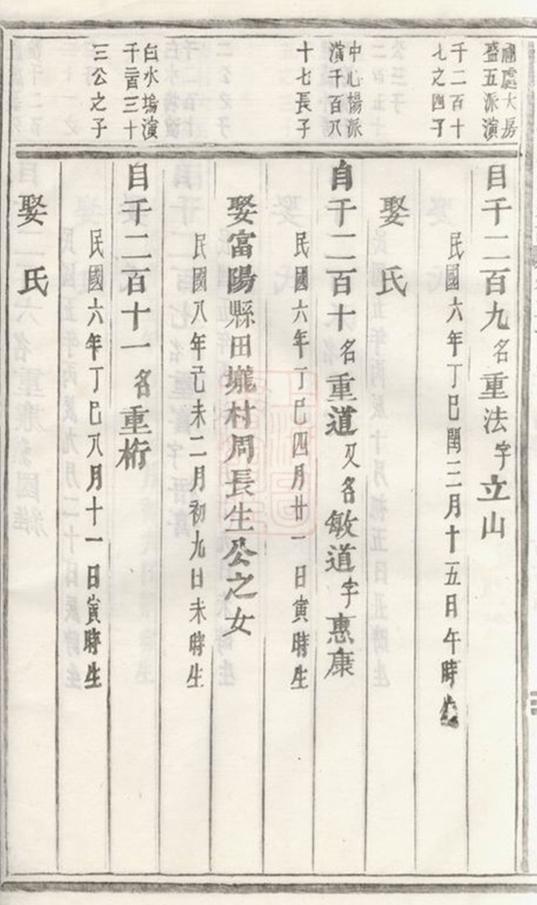 盛五派演
千二百十
七之四子
自千二百九名重法字立山
民國六年丁巳閏三月十五日午時生
娶 氏
中心揚派
演千百八
十七長子
自千二百十名重道又名敏道字惠康
民國六年丁巳四月廿一日寅時生
娶富陽縣田壠村周長生公之女
民國八年己未二月初九日未時生
白水塢演
千二百三十
三公之子
自千二百十一名重桁
民國六年丁巳八月十一日寅時生
娶 氏